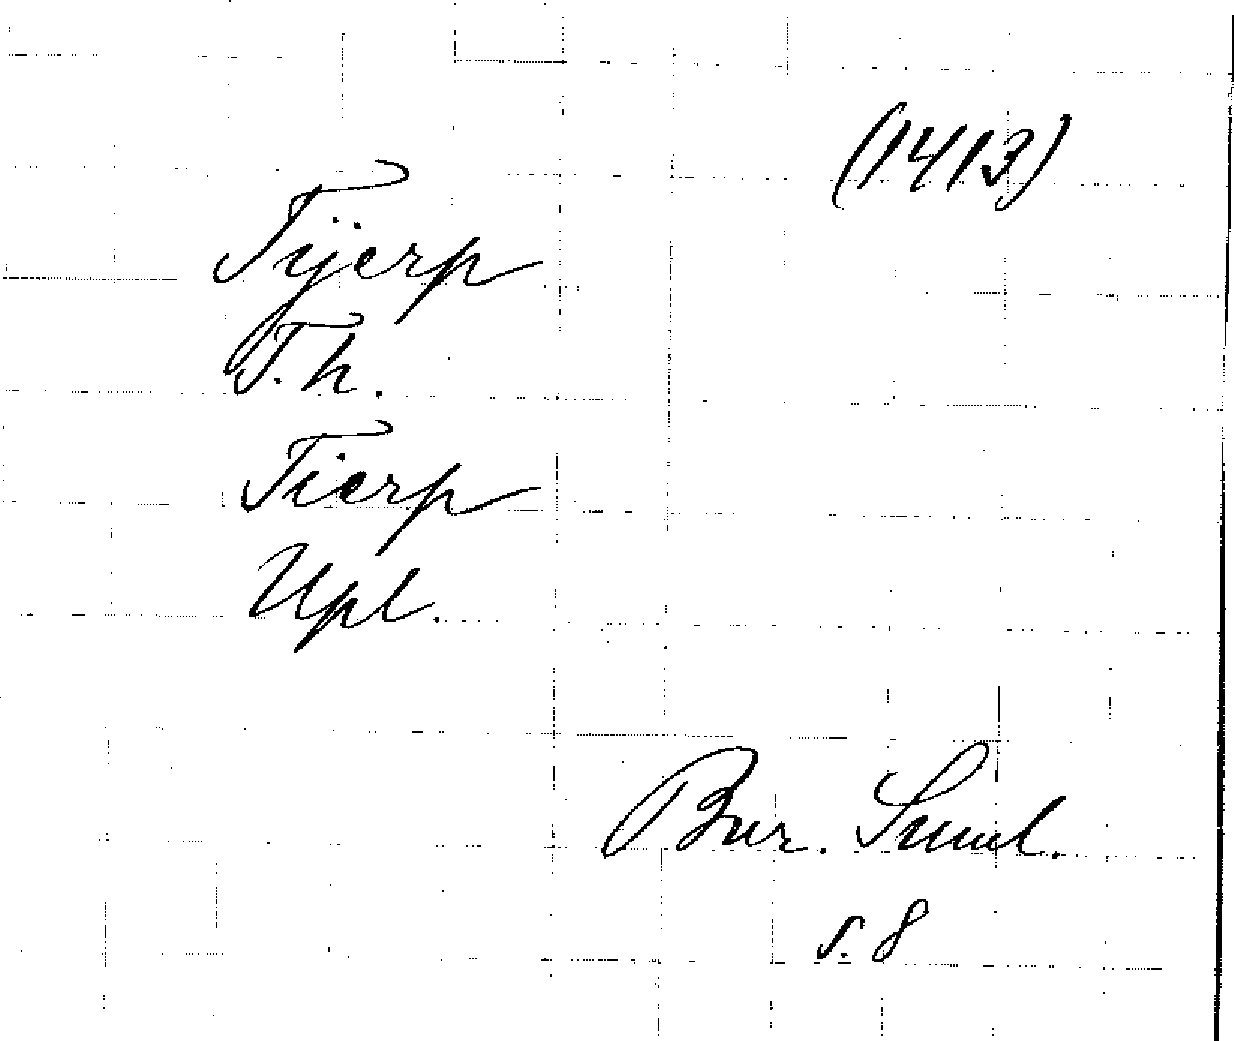 (1413)
Tÿerp
T. h.
Tierp
Upl.
Bur. Suml.
s. 8